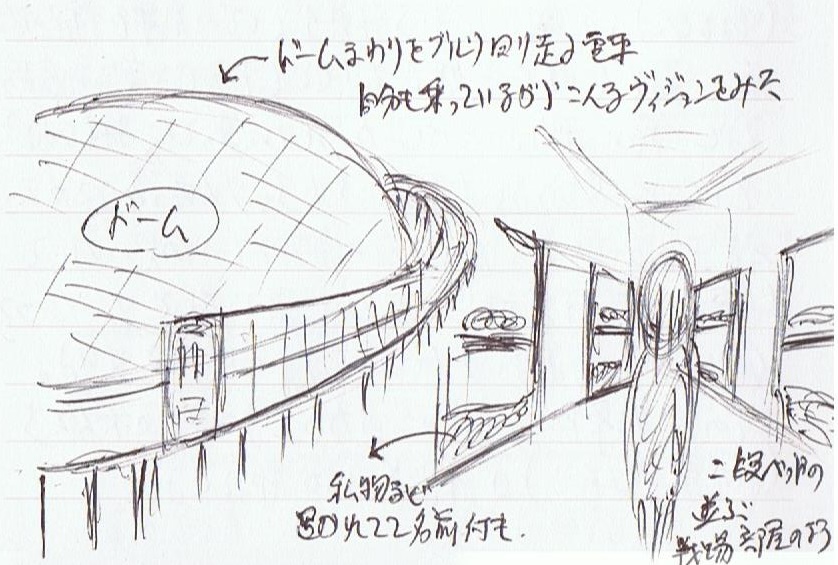 ドームまわりをグルリ回り走る電車
自分も乗っているが、こんなヴィジョンをみた
ドーム
私物など
置かれてて名前付も.
二段ベットの
並ぶ
部屋の